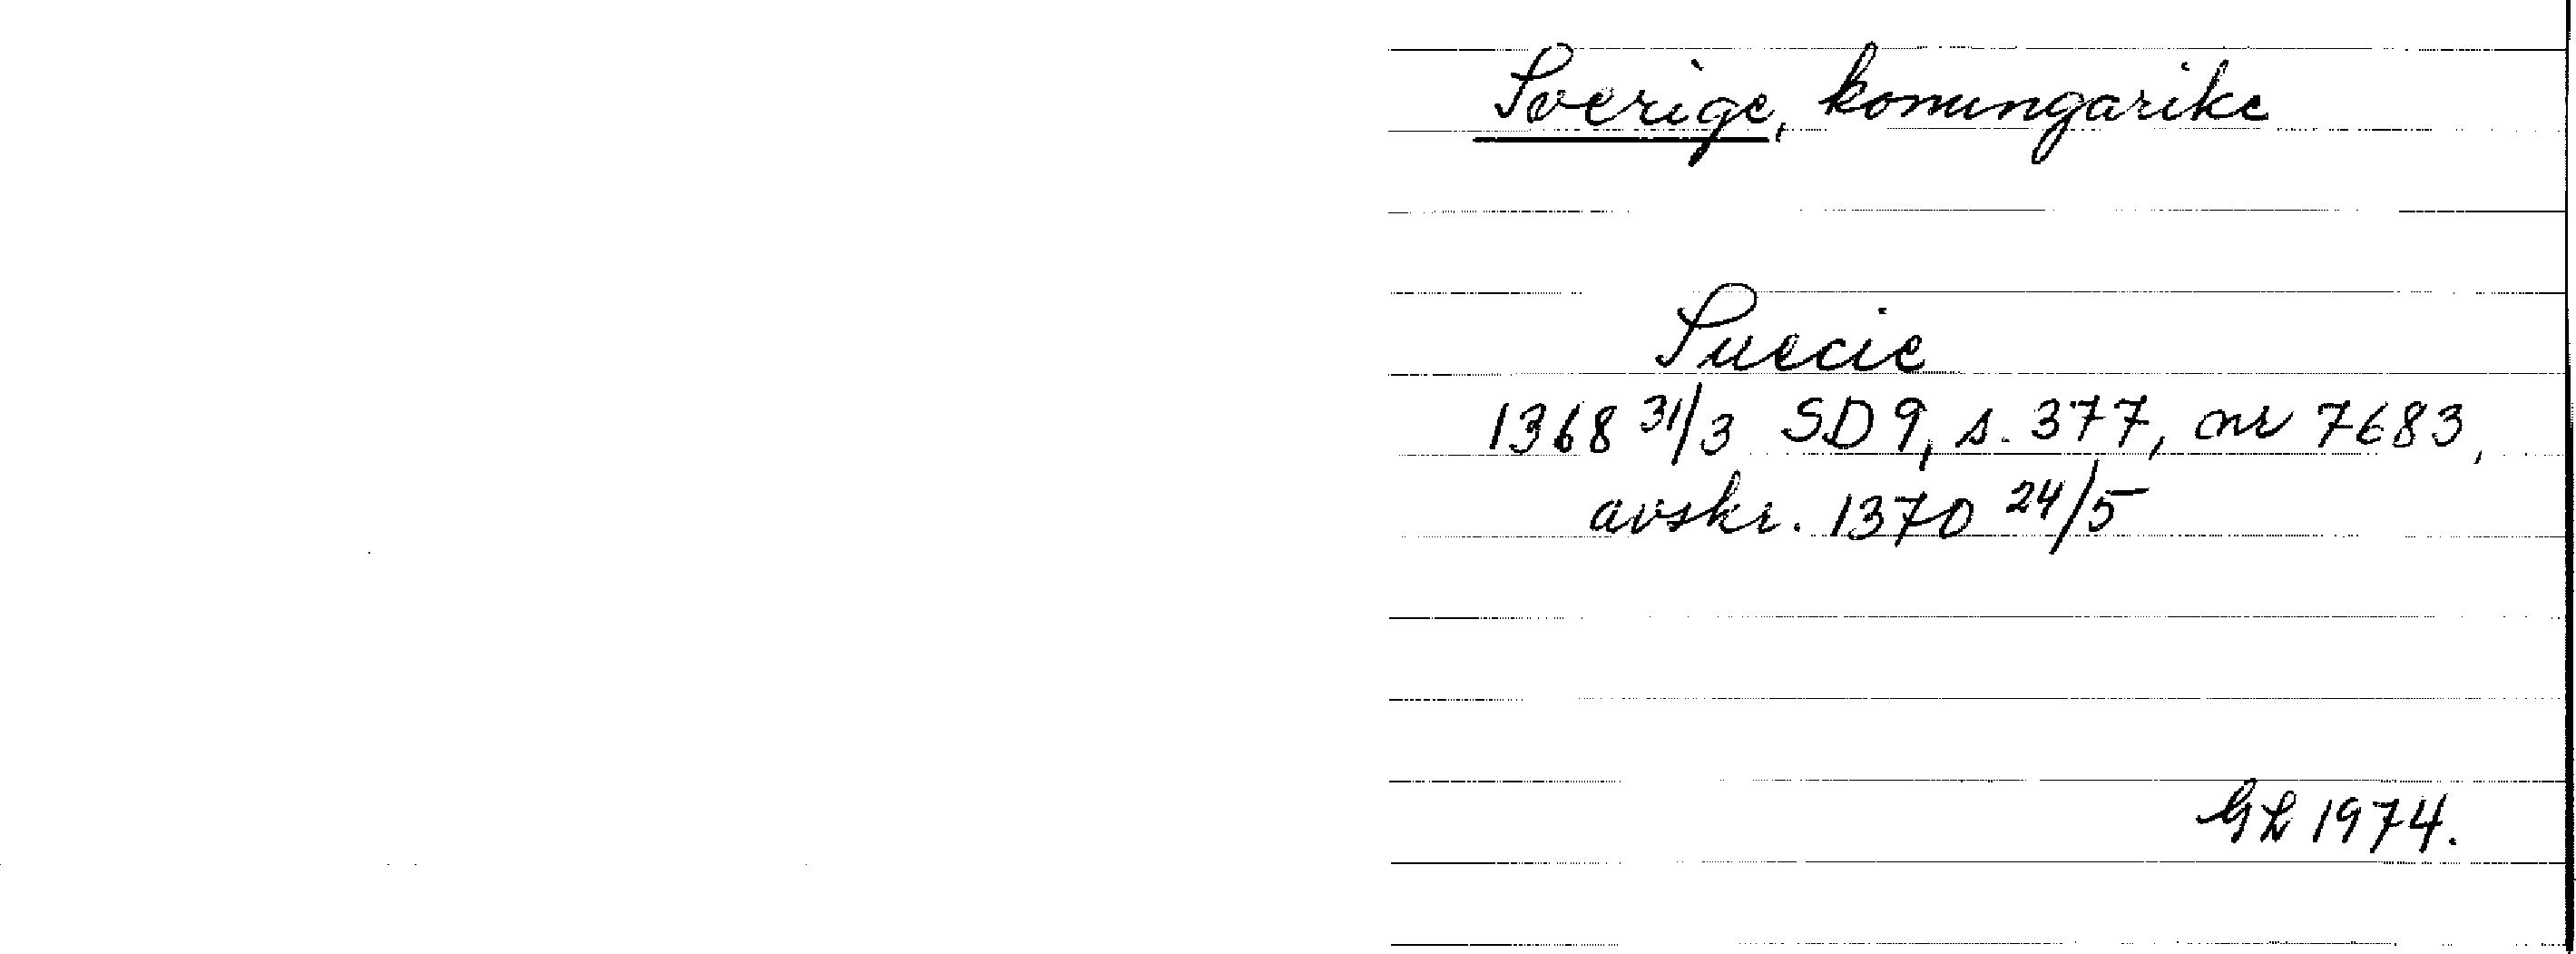 Sverige, konungarike
Suecie
1368 31/3 SD 9, s. 377, nr 7683,
avskr. 1370 24/5
GL 1974.